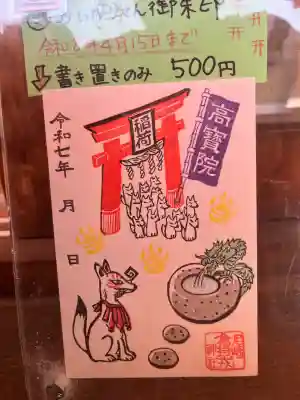 御朱印
令和七年4月15日まで
書き置きのみ 500円
稲荷
高寶院
令和七年 月 日